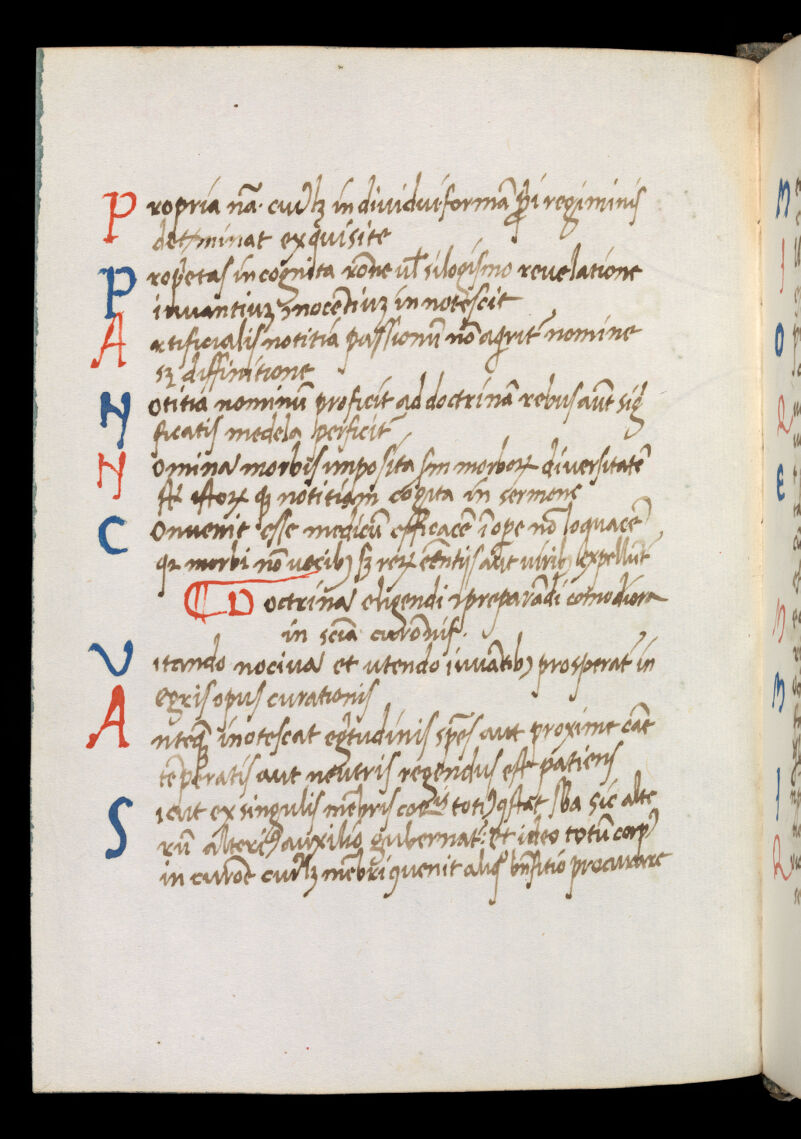 Propria nã. cuiꝰlꝫ individui formã ꝑpͥ regiminis
det̃minat exquisite
Propͥetas incognita rõne ul̃ silogismo revelatione
iuvantiuꝫ nocẽtiuꝫ innotescit
Artificialis notitia passionũ nõ aq̃rit̃ nomine
sꝫ diffinitione
Notitia nominũ proficit ad doctrinã rebus aũt sig
ficatis medela perficit̃
Nomina morbis imposita sm̃ morboꝝ diversitatẽ
istoꝝ notitiam in sermone
Convenit esse medicũ efficacẽ ĩ oꝑe nõ loquacẽ
qꝛ morbi nõ vocibꝫ sꝫ reꝝ expellũt̃
¶ Doctrina eligendi ⁊ preparãdi comodiora
in sciã curõnis.
Vitando nociva et utendo iuvãtibꝫ prosperat̃ in
egris opus curationis
Anteqꝫ ĩnotescat egͥtudinis sp̃es aut proxime cãe
tẽperatis aut neutris regendus est patiens
Sicut ex singulis mẽbris totiꝰ sb̃a sic alte
rũ alteriꝰ auxilio gubernat̃: et ideo totũ corpꝰ
in curõe cuiꝰlꝫ mẽbri ꝯvenit procurare